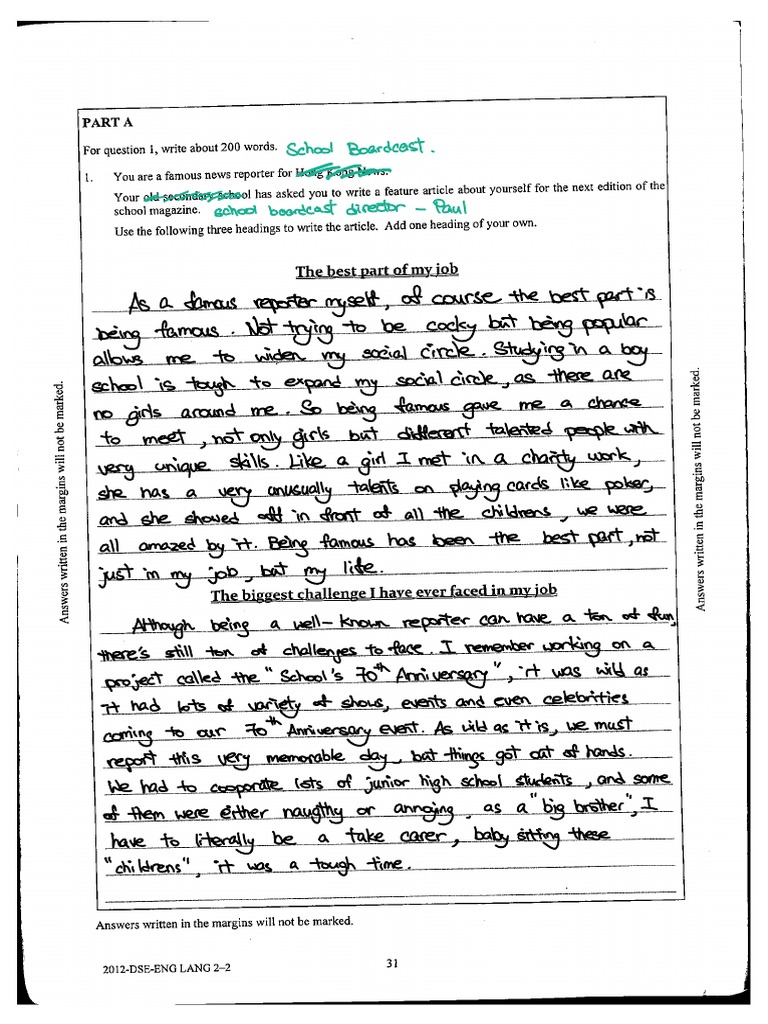 PART A
For question 1, write about 200 words. School Boardcast.
1. You are a famous news reporter for Hong Kong News.
Your old secondary school has asked you to write a feature article about yourself for the next edition of the
school magazine. school boardcast director - Paul
Use the following three headings to write the article. Add one heading of your own.
The best part of my job
As a famous reporter myself, of course the best part is
being famous. Not trying to be cocky but being popular
allows me to widen my social circle. Studying in a boy
school is tough to expand my social circle, as there are
no girls around me. So being famous gave me a chance
to meet, not only girls but different talented people with
very unique skills. Like a girl I met in a charity work,
she has a very unusually talents on playing cards like poker,
and she showed off in front of all the childrens, we were
all amazed by it. Being famous has been the best part, not
just in my job, but my life.
The biggest challenge I have ever faced in my job
Although being a well-known reporter can have a ton of fun,
there's still ton of challenges to face. I remember working on a
project called the "School's 70th Anniversary", it was wild as
it had lots of variety of shows, events and even celebrities
coming to our 70th Anniversary event. As wild as it is, we must
report this very memorable day, but things got out of hands.
We had to cooperate lots of junior high school students, and some
of them were either naugthy or annoying, as a "big brother", I
have to literally be a take carer, baby sitting these
"childrens", it was a tough time.
Answers written in the margins will not be marked.
Answers written in the margins will not be marked.
Answers written in the margins will not be marked.
2012-DSE-ENG LANG 2–2
31